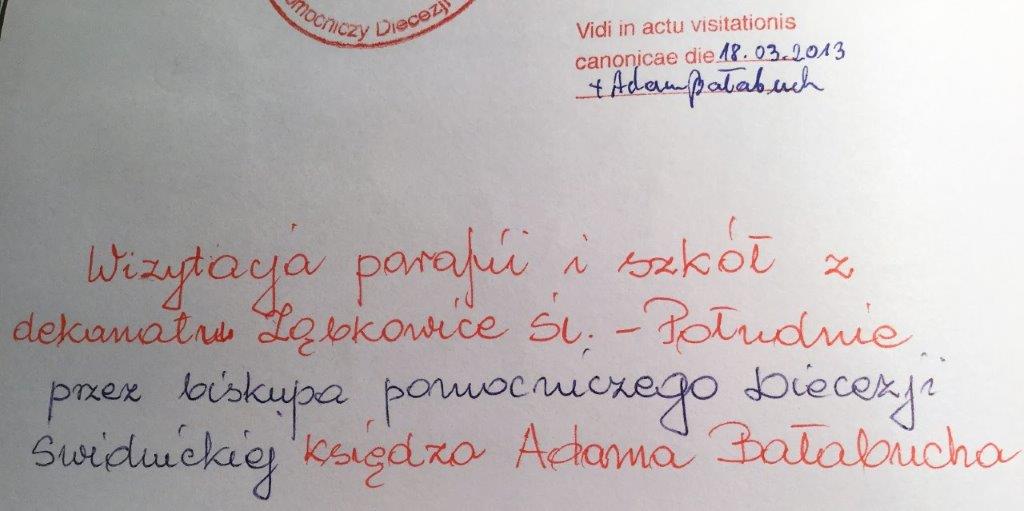 omocniczy Diecezji
Vidi in actu visitationis
canonicae die 18.03.2013
+ Adam Bałabuch
Wizytacja parafii i szkół z
dekanatu Ząbkowice Śl. - Południe
przez biskupa pomocniczego Diecezji
Świdnickiej księdza Adama Bałabucha